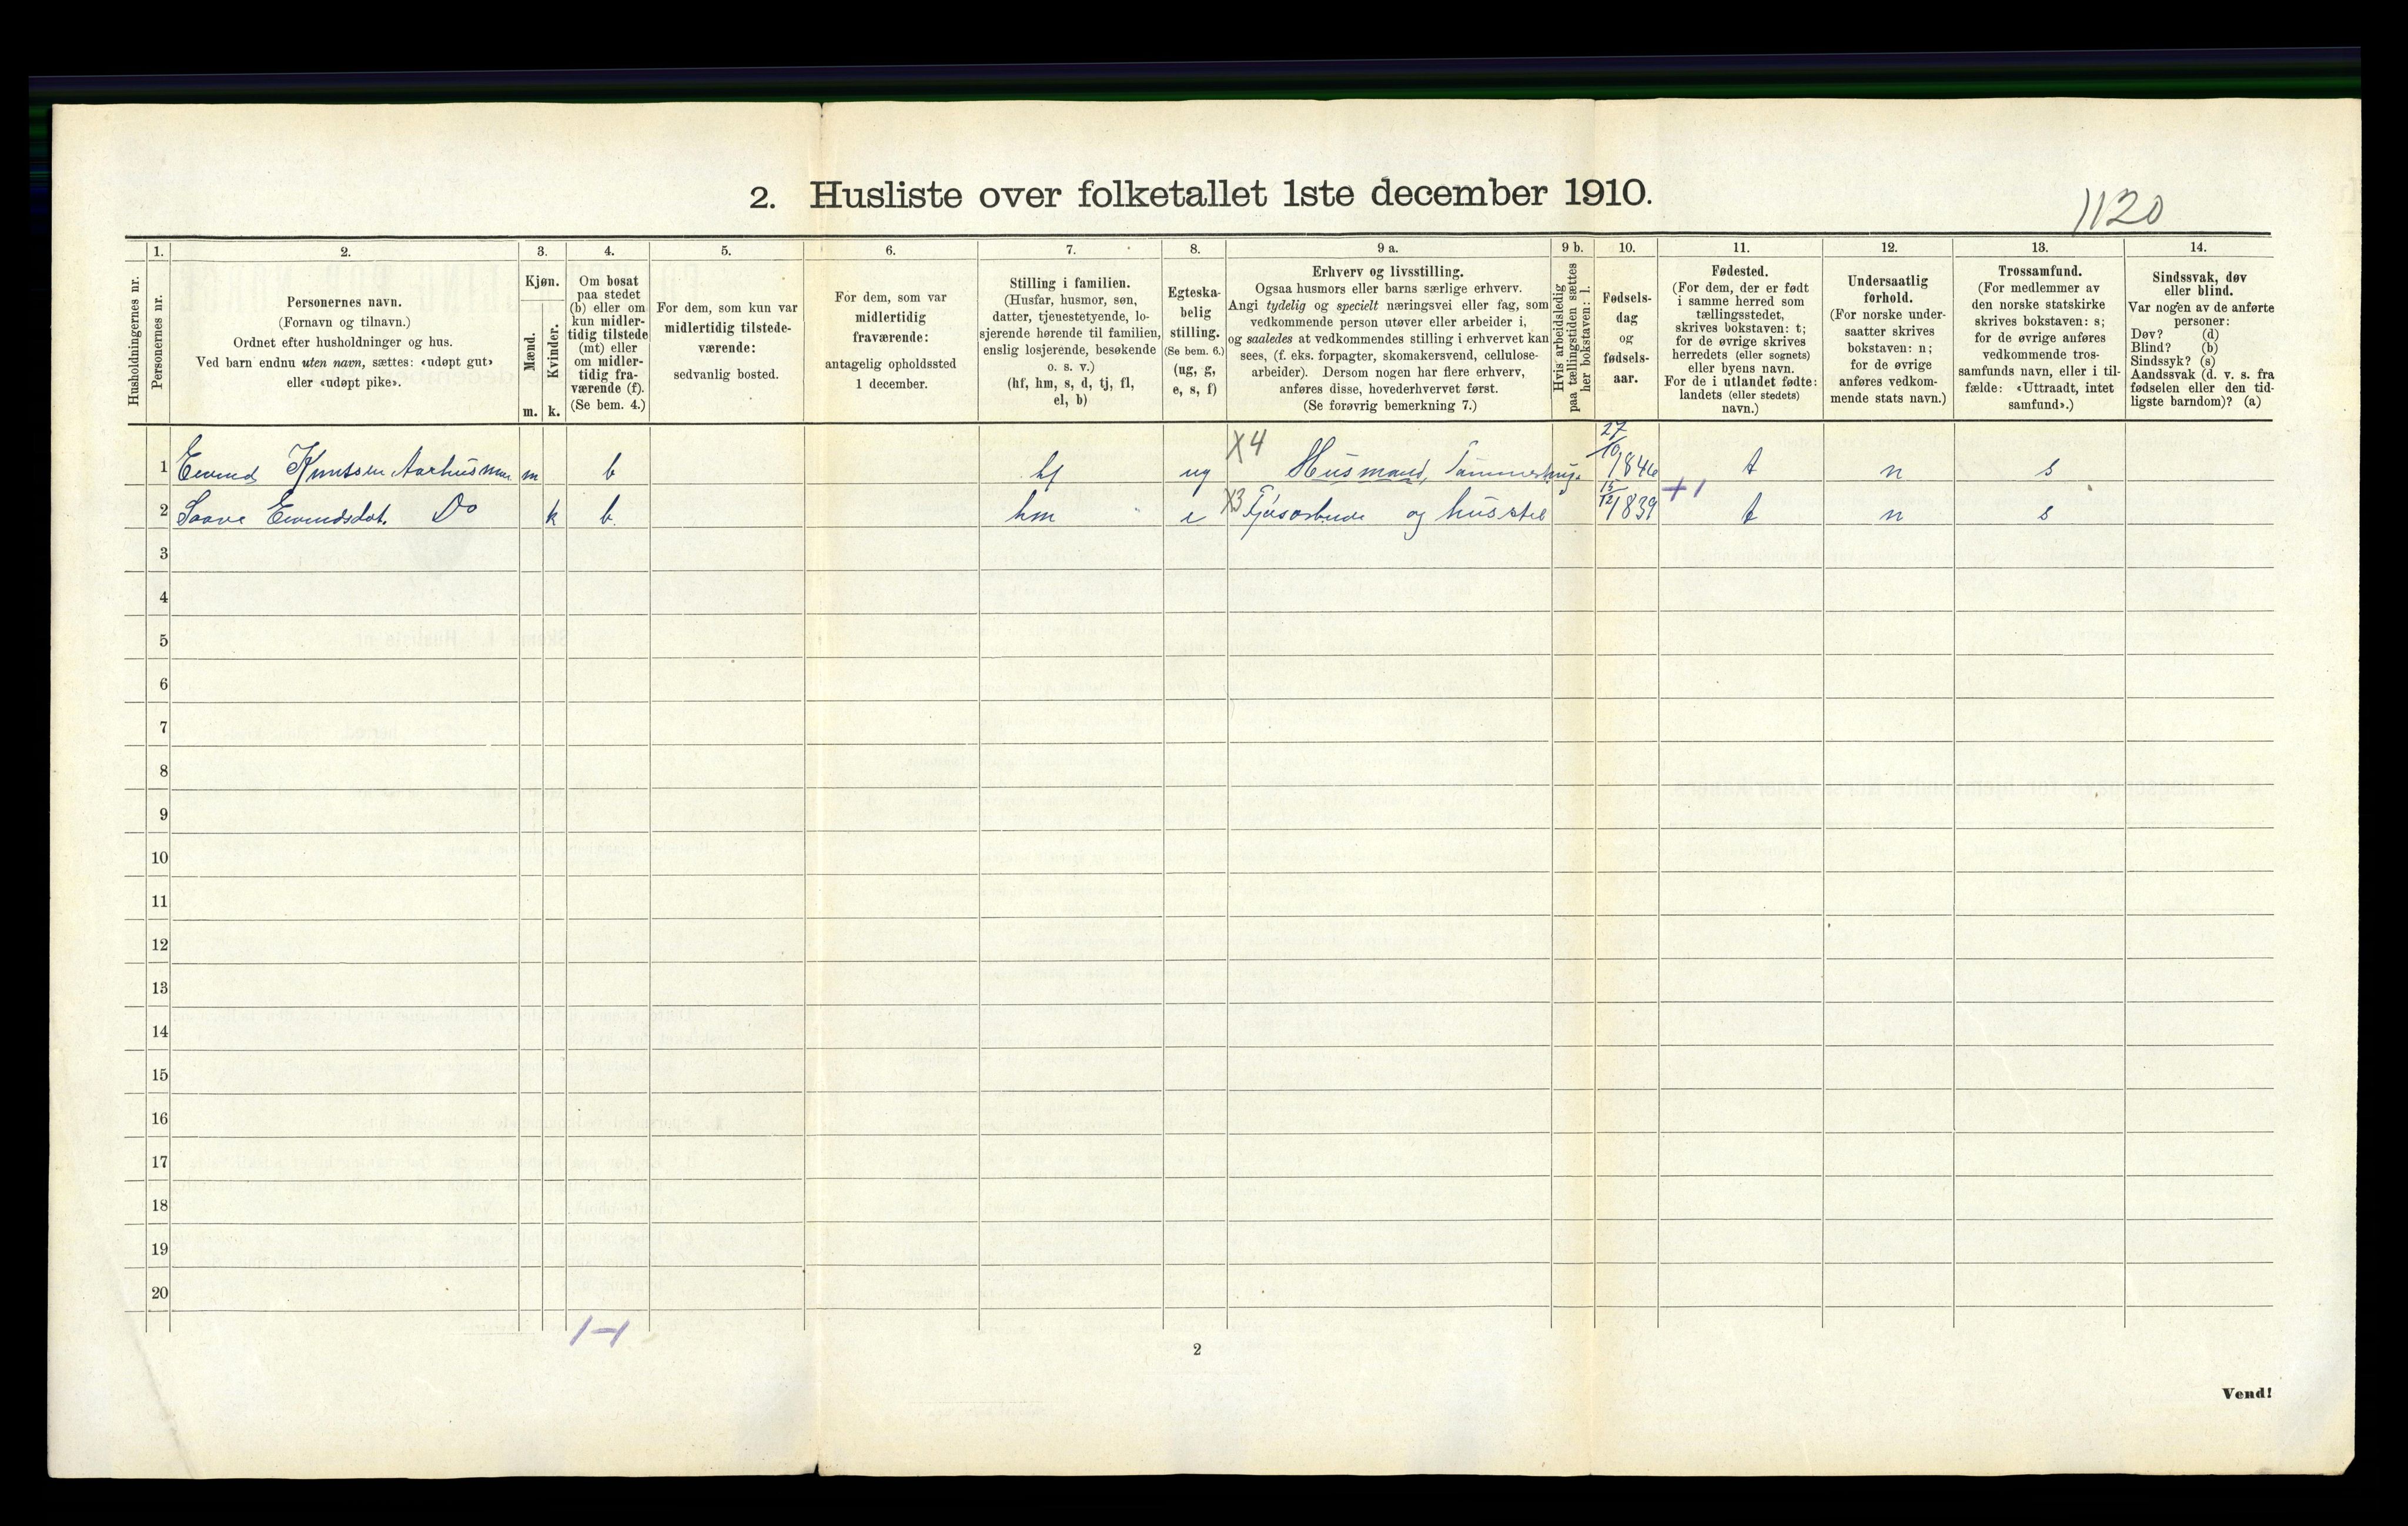 2. Husliste over folketallet 1ste december 1910.
1120
1. 2. 3. 4. 5. 6. 7. 8. 9 a. 9 b. 10. 11. 12. 13. 14.
Husholdningernes nr.
Personernes nr.
Personernes navn.
(Fornavn og tilnavn.)
Ordnet efter husholdninger og hus.
Ved barn endnu uten navn, sættes: «udøpt gut»
eller «udøpt pike».
Kjøn.
Mænd.
Kvinder.
m. k.
Om bosat
paa stedet
(b) eller om
kun midler-
tidig tilstede
(mt) eller
om midler-
tidig fra-
værende (f).
(Se bem. 4.)
For dem, som kun var
midlertidig tilstede-
værende:
sedvanlig bosted.
For dem, som var
midlertidig
fraværende:
antagelig opholdssted
1 december.
Stilling i familien.
(Husfar, husmor, søn,
datter, tjenestetyende, lo-
sjerende hørende til familien,
enslig losjerende, besøkende
o. s. v.)
(hf, hm, s, d, tj, fl,
el, b)
Egteska-
belig
stilling.
(Se bem. 6.)
(ug, g,
e, s, f)
Erhverv og livsstilling.
Ogsaa husmors eller barns særlige erhverv.
Angi tydelig og specielt næringsvei eller fag, som
vedkommende person utøver eller arbeider i,
og saaledes at vedkommendes stilling i erhvervet kan
sees, (f. eks. forpagter, skomakersvend, cellulose-
arbeider). Dersom nogen har flere erhverv,
anføres disse, hovederhvervet først.
(Se forøvrig bemerkning 7.)
Hvis arbeidsledig
paa tællingstiden sættes
her bokstaven: l.
Fødsels-
dag
og
fødsels-
aar.
Fødested.
(For dem, der er født
i samme herred som
tællingsstedet,
skrives bokstaven: t;
for de øvrige skrives
herredets (eller sognets)
eller byens navn.
For de i utlandet fødte:
landets (eller stedets)
navn.)
Undersaatlig
forhold.
(For norske under-
saatter skrives
bokstaven: n;
for de øvrige
anføres vedkom-
mende stats navn.)
Trossamfund.
(For medlemmer av
den norske statskirke
skrives bokstaven: s;
for de øvrige anføres
vedkommende tros-
samfunds navn, eller i til-
fælde: «Uttraadt, intet
samfund».)
Sindssvak, døv
eller blind.
Var nogen av de anførte
personer:
Døv? (d)
Blind? (b)
Sindssyk? (s)
Aandssvak (d. v. s. fra
fødselen eller den tid-
ligste barndom)? (a)
1 Eivind Knutsen Aarhusmoen m b hf ug X4 Husmand, Tømmerhug. 27/10 1846 t n s
2 Saave Eivindsdat. Do k b. hm e X3 Fjøsarbeide og husstel 15/12 1839 +1 t n s
3
4
5
6
7
8
9
10
11
12
13
14
15
16
17
18
19
20
1-1
2
Vend!